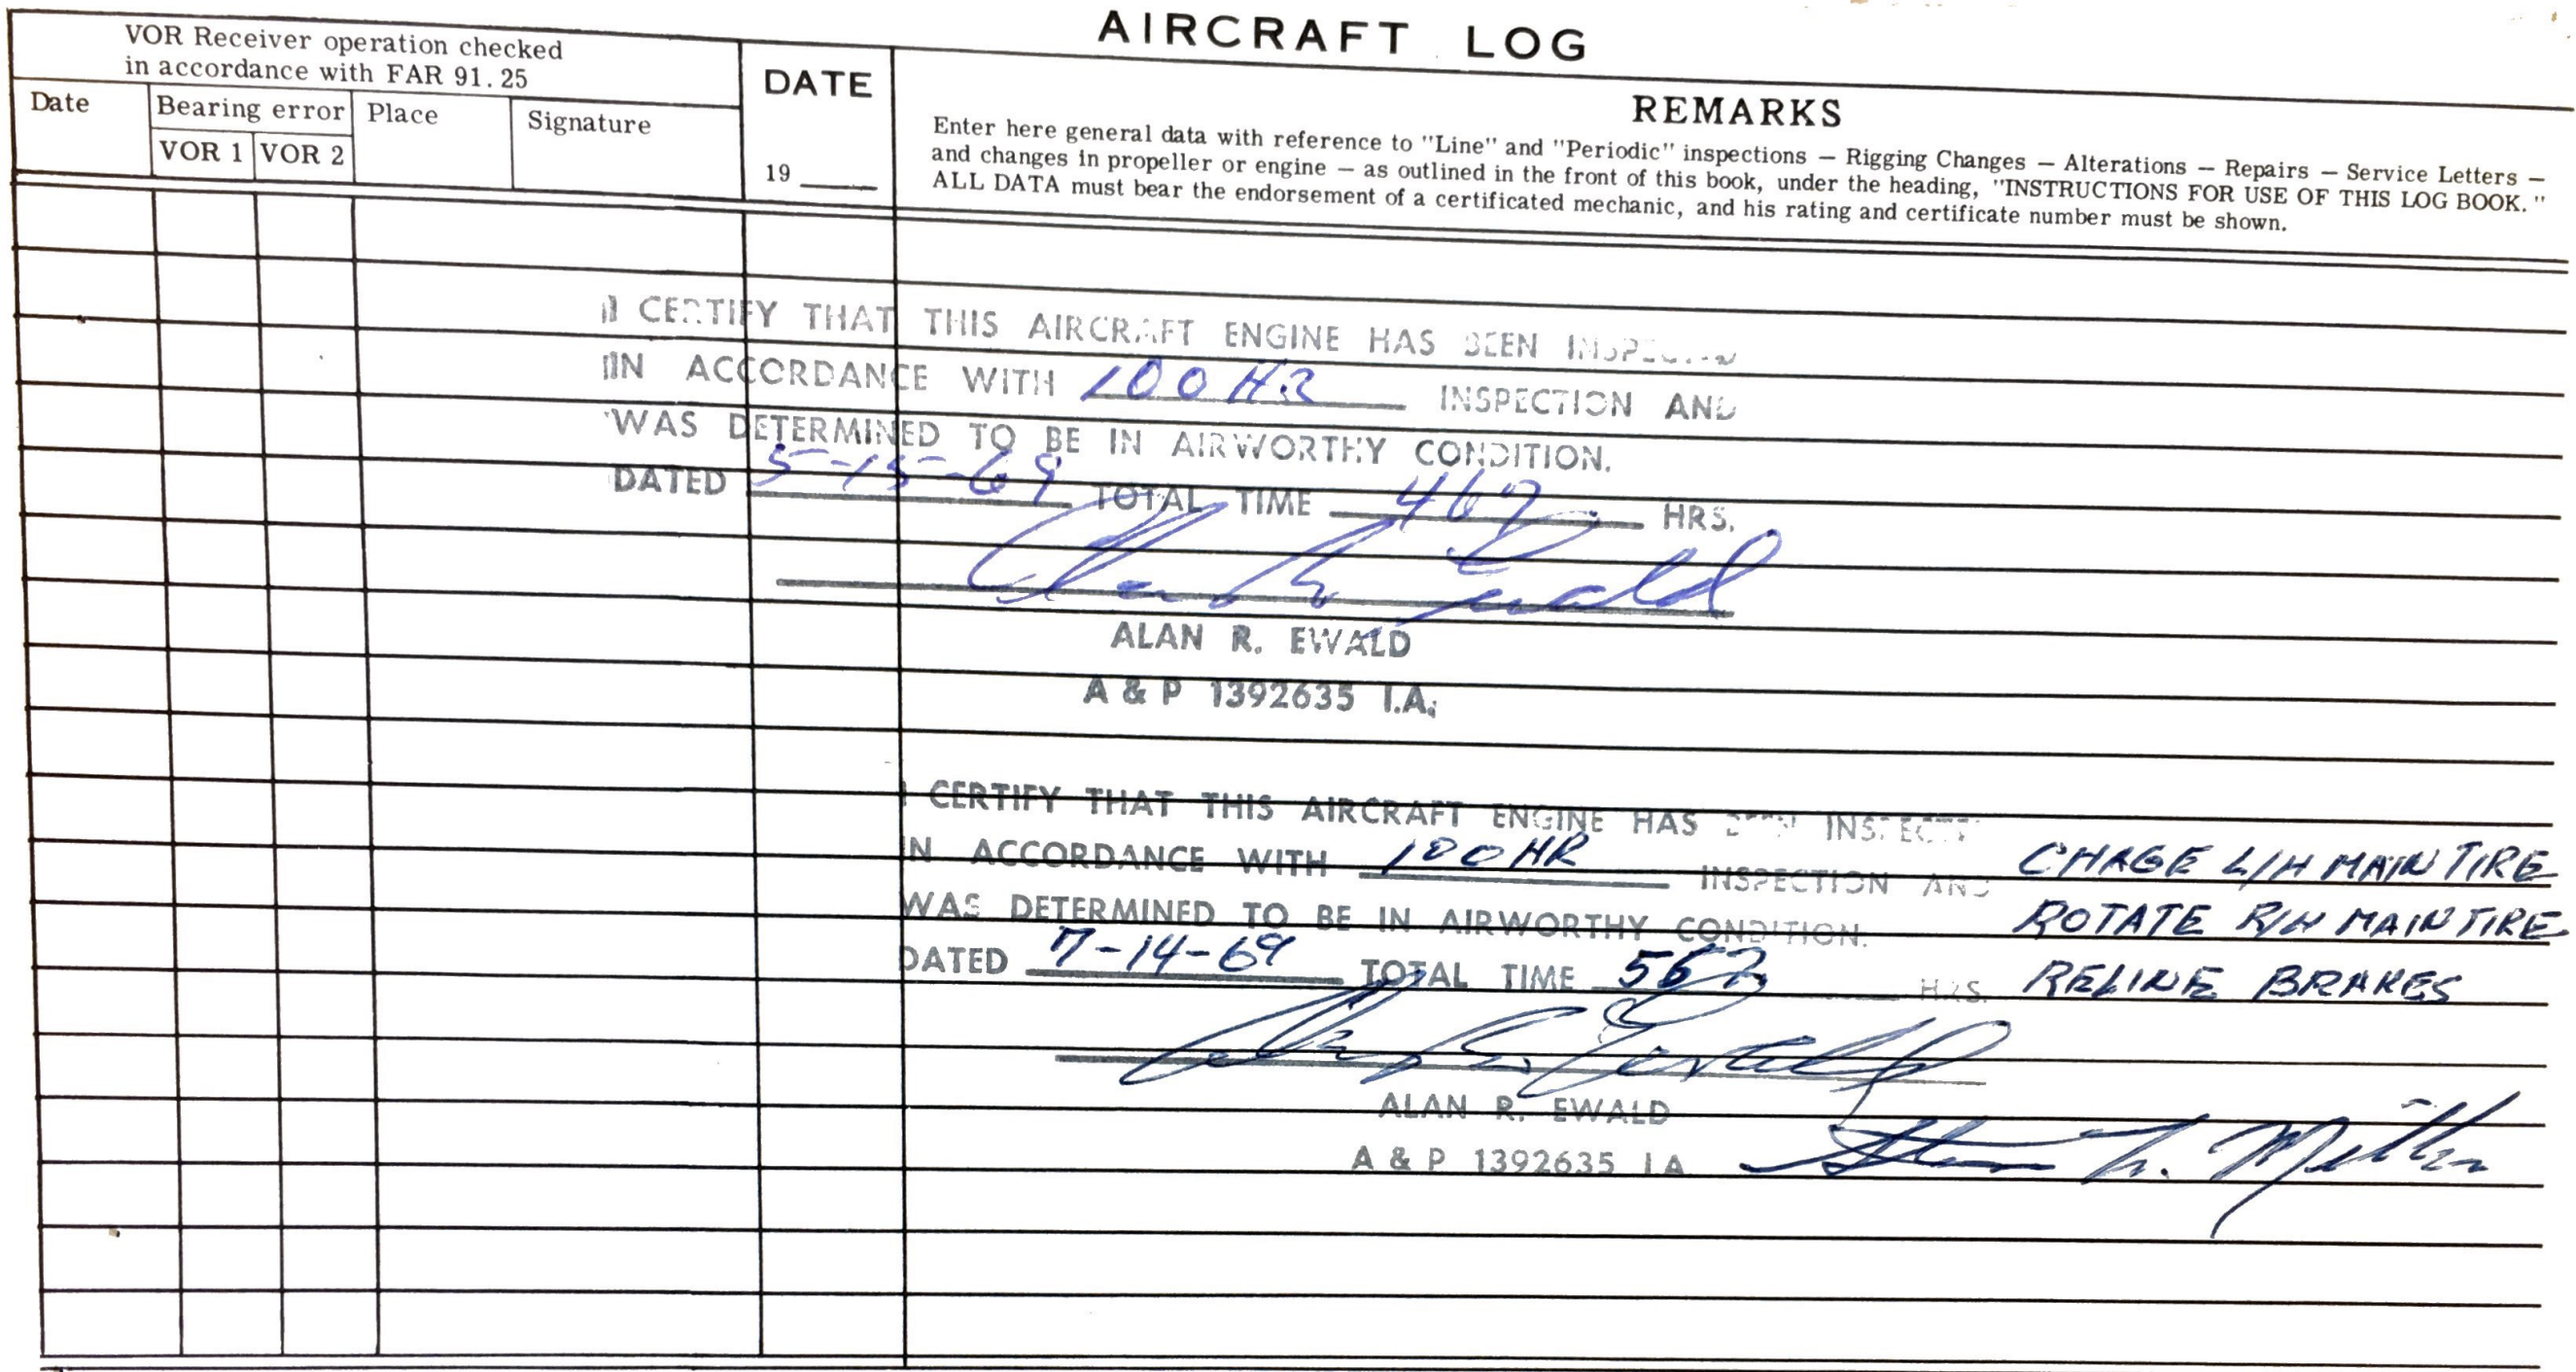 AIRCRAFT LOG
VOR Receiver operation checked
in accordance with FAR 91.25
Date
Bearing error
VOR 1 VOR 2
Place
Signature
DATE
19
REMARKS
Enter here general data with reference to "Line" and "Periodic" inspections — Rigging Changes — Alterations — Repairs — Service Letters —
and changes in propeller or engine — as outlined in the front of this book, under the heading, "INSTRUCTIONS FOR USE OF THIS LOG BOOK."
ALL DATA must bear the endorsement of a certificated mechanic, and his rating and certificate number must be shown.
I CERTIFY THAT THIS AIRCRAFT ENGINE HAS BEEN INSPECTED
IN ACCORDANCE WITH 100 HR INSPECTION AND
WAS DETERMINED TO BE IN AIRWORTHY CONDITION.
DATED 5-15-69 TOTAL TIME 467 HRS.
Alan R. Ewald
ALAN R. EWALD
A & P 1392635 I.A.
I CERTIFY THAT THIS AIRCRAFT ENGINE HAS BEEN INSPECTED
IN ACCORDANCE WITH 100 HR INSPECTION AND CHAGE L/H MAIN TIRE
WAS DETERMINED TO BE IN AIRWORTHY CONDITION. ROTATE R/H MAIN TIRE
DATED 7-14-69 TOTAL TIME 567 HRS. RELINE BRAKES
Alan R. Ewald
ALAN R. EWALD
A & P 1392635 I.A